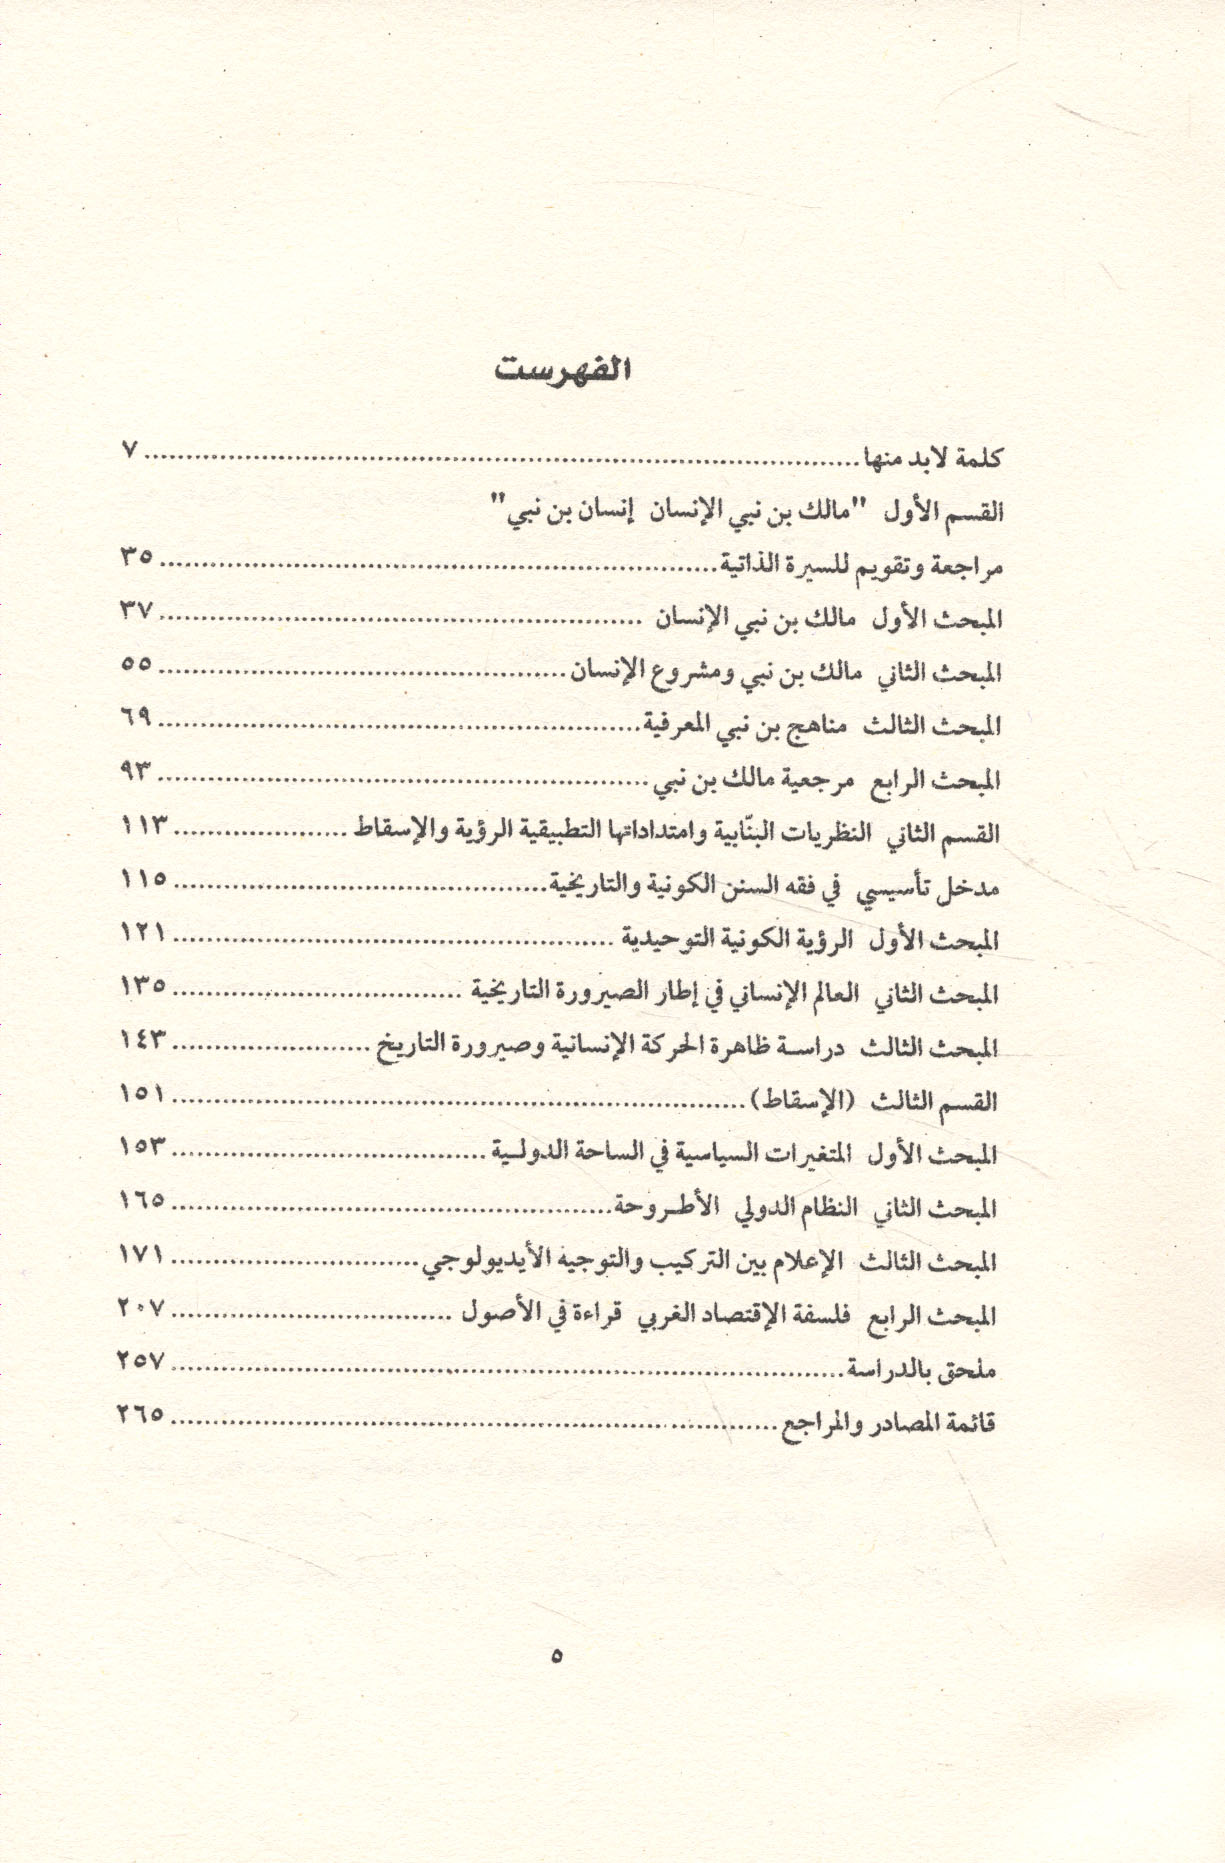 الفهرست
كلمة لابد منها ........ ٧
القسم الأول "مالك بن نبي الإنسان إنسان بن نبي"
مراجعة وتقويم للسيرة الذاتية ........ ٣٥
المبحث الأول مالك بن نبي الإنسان ........ ٣٧
المبحث الثاني مالك بن نبي ومشروع الإنسان ........ ٥٥
المبحث الثالث مناهج بن نبي المعرفية ........ ٦٩
المبحث الرابع مرجعية مالك بن نبي ........ ٩٣
القسم الثاني النظريات البنّابية وامتداداتها التطبيقية الرؤية والإسقاط ........ ١١٣
مدخل تأسيسي في فقه السنن الكونية والتاريخية ........ ١١٥
المبحث الأول الرؤية الكونية التوحيدية ........ ١٢١
المبحث الثاني العالم الإنساني في إطار الصيرورة التاريخية ........ ١٣٥
المبحث الثالث دراسة ظاهرة الحركة الإنسانية وصيرورة التاريخ ........ ١٤٣
القسم الثالث (الإسقاط) ........ ١٥١
المبحث الأول المتغيرات السياسية في الساحة الدولية ........ ١٥٣
المبحث الثاني النظام الدولي الأطروحة ........ ١٦٥
المبحث الثالث الإعلام بين التركيب والتوجيه الأيديولوجي ........ ١٧١
المبحث الرابع فلسفة الإقتصاد الغربي قراءة في الأصول ........ ٢٠٧
ملحق بالدراسة ........ ٢٥٧
قائمة المصادر والمراجع ........ ٢٦٥
٥